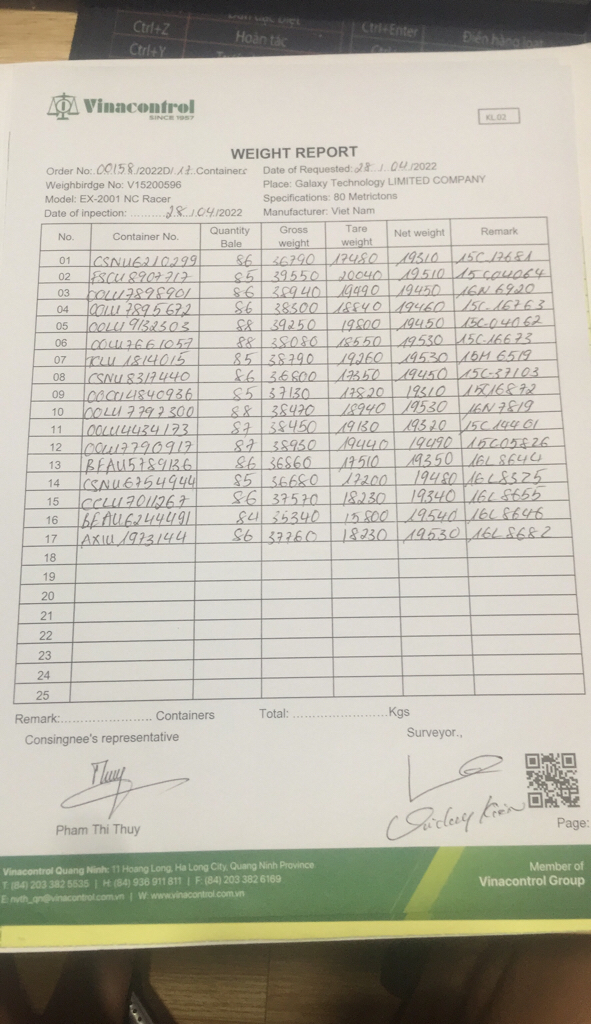 Ctrl+Z
Hoàn tác
Ctrl+Enter
Điền hàng loạt
Ctrl+Y
Vinacontrol
SINCE 1957
KL.02
WEIGHT REPORT
Order No: 00158/2022D/ 17 Containers Date of Requested: 28 / 04/2022
Weighbirdge No: V15200596 Place: Galaxy Technology LIMITED COMPANY
Model: EX-2001 NC Racer Specifications: 80 Metrictons
Date of inpection: ............28/04/2022 Manufacturer: Viet Nam
No. Container No. Quantity Bale Gross weight Tare weight Net weight Remark
01 CSNU6210299 86 36790 17480 19310 15C 17681
02 FSCU8907717 85 39550 20040 19510 15C04064
03 OOLU7898901 86 38940 19490 19450 16N 6920
04 OOLU7895672 86 38300 18840 19460 15C-16763
05 OOLU9132303 88 39250 19800 19450 15C-04062
06 OOLU7661057 88 38080 18550 19530 15C-16673
07 TCLU 1814015 85 38790 19260 19530 15H 6519
08 CSNU8317440 86 36800 17350 19450 15C-37103
09 OOCU4840936 85 37130 17820 19310 15C16872
10 OOLU7797300 88 38470 18940 19530 16N7819
11 OOLU4434173 87 38450 19130 19320 15C14401
12 OOLU7790917 87 38930 19440 19490 15C05826
13 BEAU5789136 86 36860 17510 19350 16L 8644
14 CSNU6754944 85 36680 17200 19480 16L8325
15 CCLU7011267 86 37570 18230 19340 16L 8655
16 BEAU6244491 84 35340 15800 19540 16L 8646
17 AXIU 1973144 86 37760 18230 19530 16L 8682
18
19
20
21
22
23
24
25
Remark:........................ Containers Total: .........................Kgs
Consingnee's representative Surveyor.,
Thuy
Pham Thi Thuy
Page:
Vinacontrol Quang Ninh: 11 Hoang Long, Ha Long City, Quang Ninh Province
T: (84) 203 382 5535 | H: (84) 936 911 811 | F: (84) 203 382 6169
E: nvth_qn@vinacontrol.com.vn | W: www.vinacontrol.com.vn
Member of
Vinacontrol Group